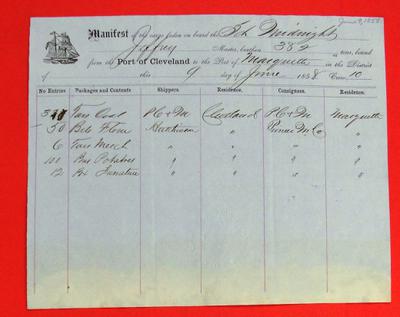 June 9, 1858
Manifest of the cargo laden on board the Sch Midnight
Jeffrey Master, burthen 382 tons, bound
from the Port of Cleveland to the Port of Marquette in the District
of this 9 day of June 1858 Crew 10
No Entries Packages and Contents Shippers. Residence. Consignees. Residence.
Tons Coal Cleveland Marquette
50 Bbls Flour Hutchinson " "
6 Tons " " "
100 Bus Potatoes " " " "
12 Bx Furniture " " " "